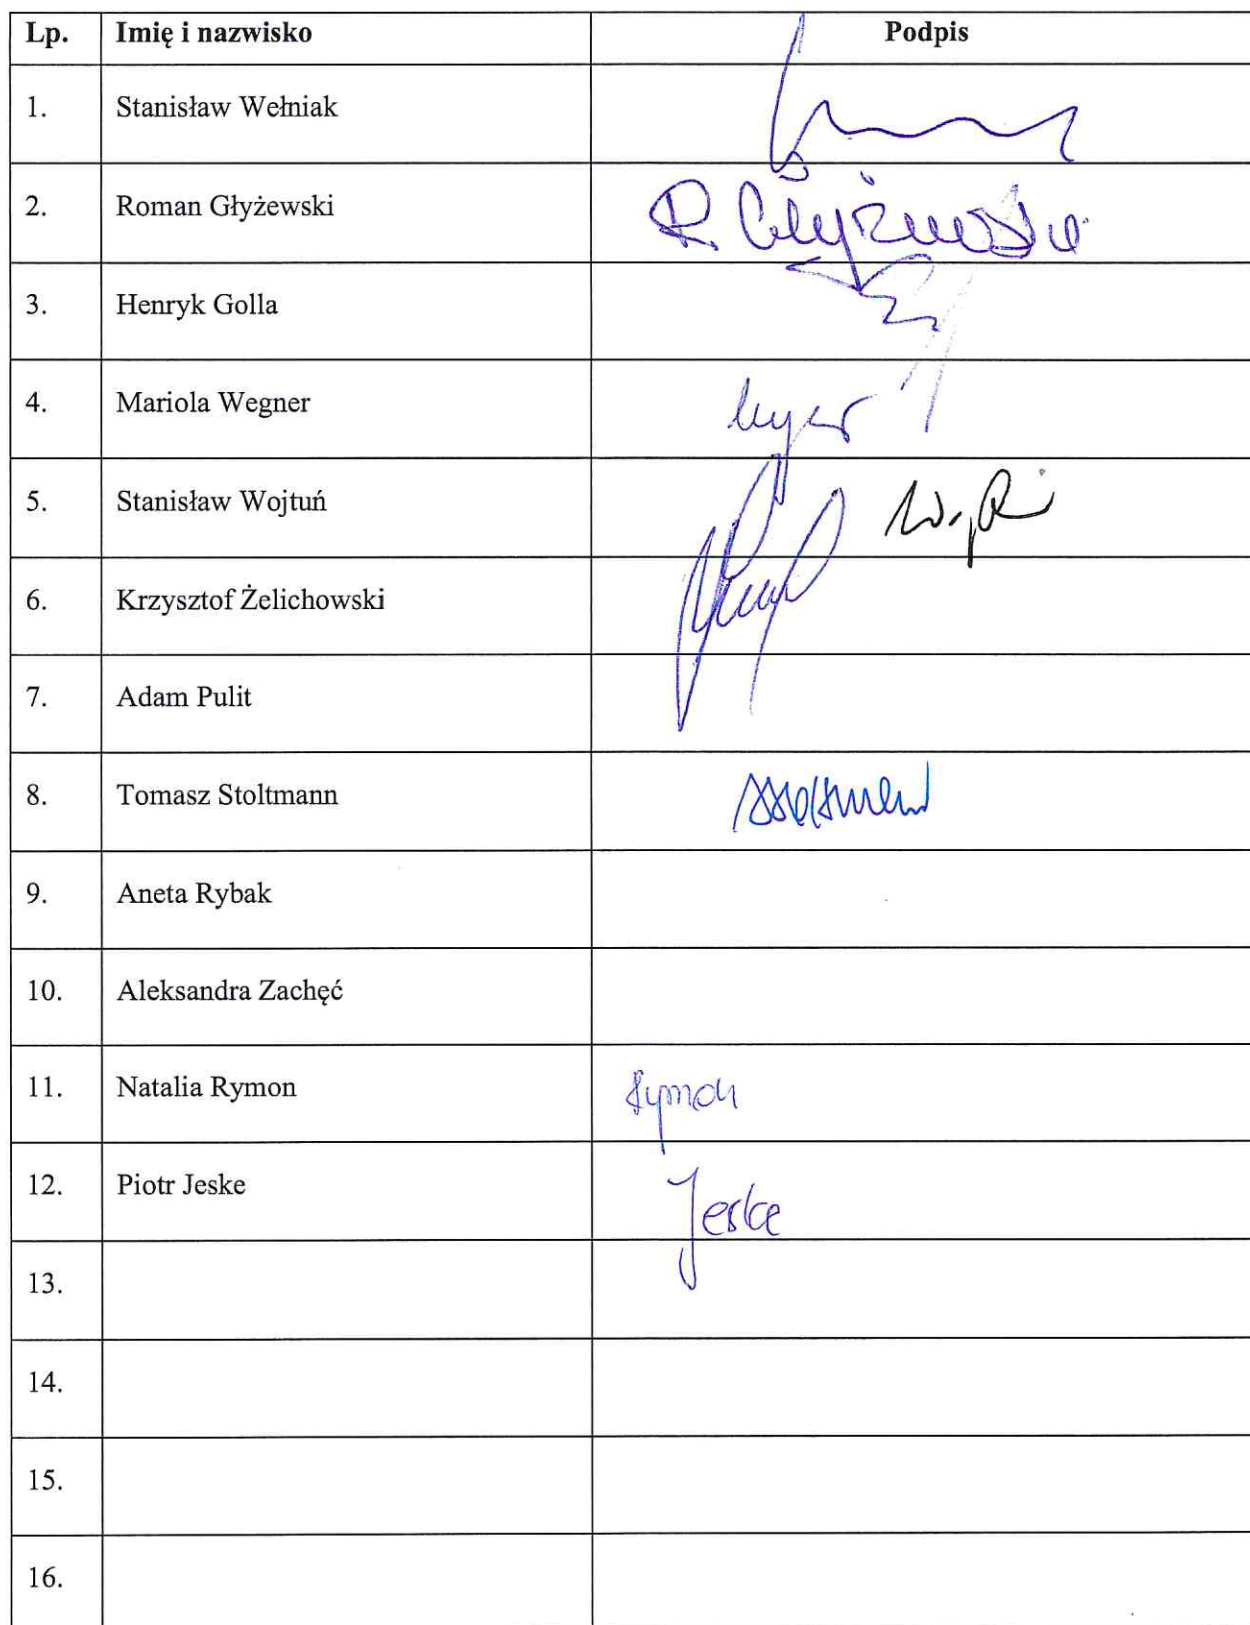 Lp. Imię i nazwisko Podpis
1. Stanisław Wełniak
2. Roman Głyżewski R. Głyżewski
3. Henryk Golla
4. Mariola Wegner
5. Stanisław Wojtuń
6. Krzysztof Żelichowski
7. Adam Pulit
8. Tomasz Stoltmann
9. Aneta Rybak
10. Aleksandra Zachęć
11. Natalia Rymon Rymon
12. Piotr Jeske Jeske
13.
14.
15.
16.